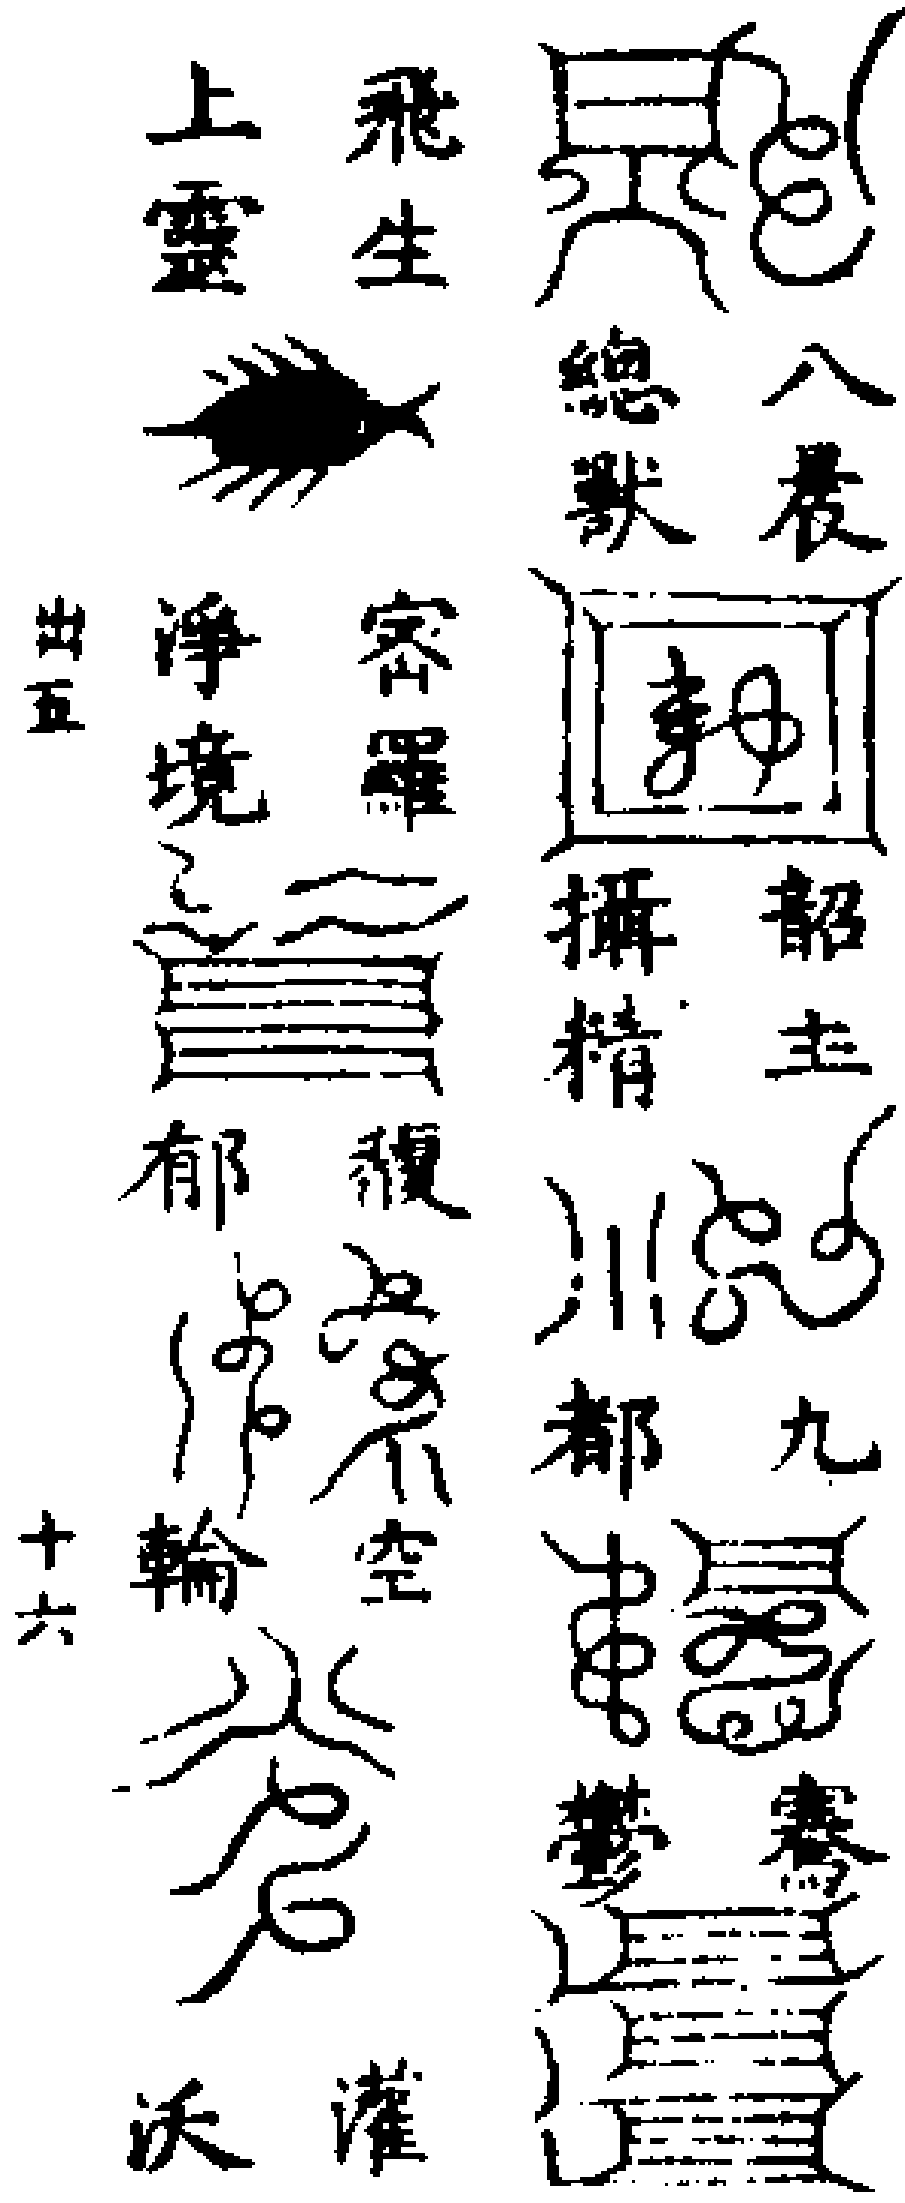 八晨
總獸
韶主
攝精
九
都
騫
鬱
飛生
上靈
密羅
淨境
郁
空
輪
灌
沃
出五
十六